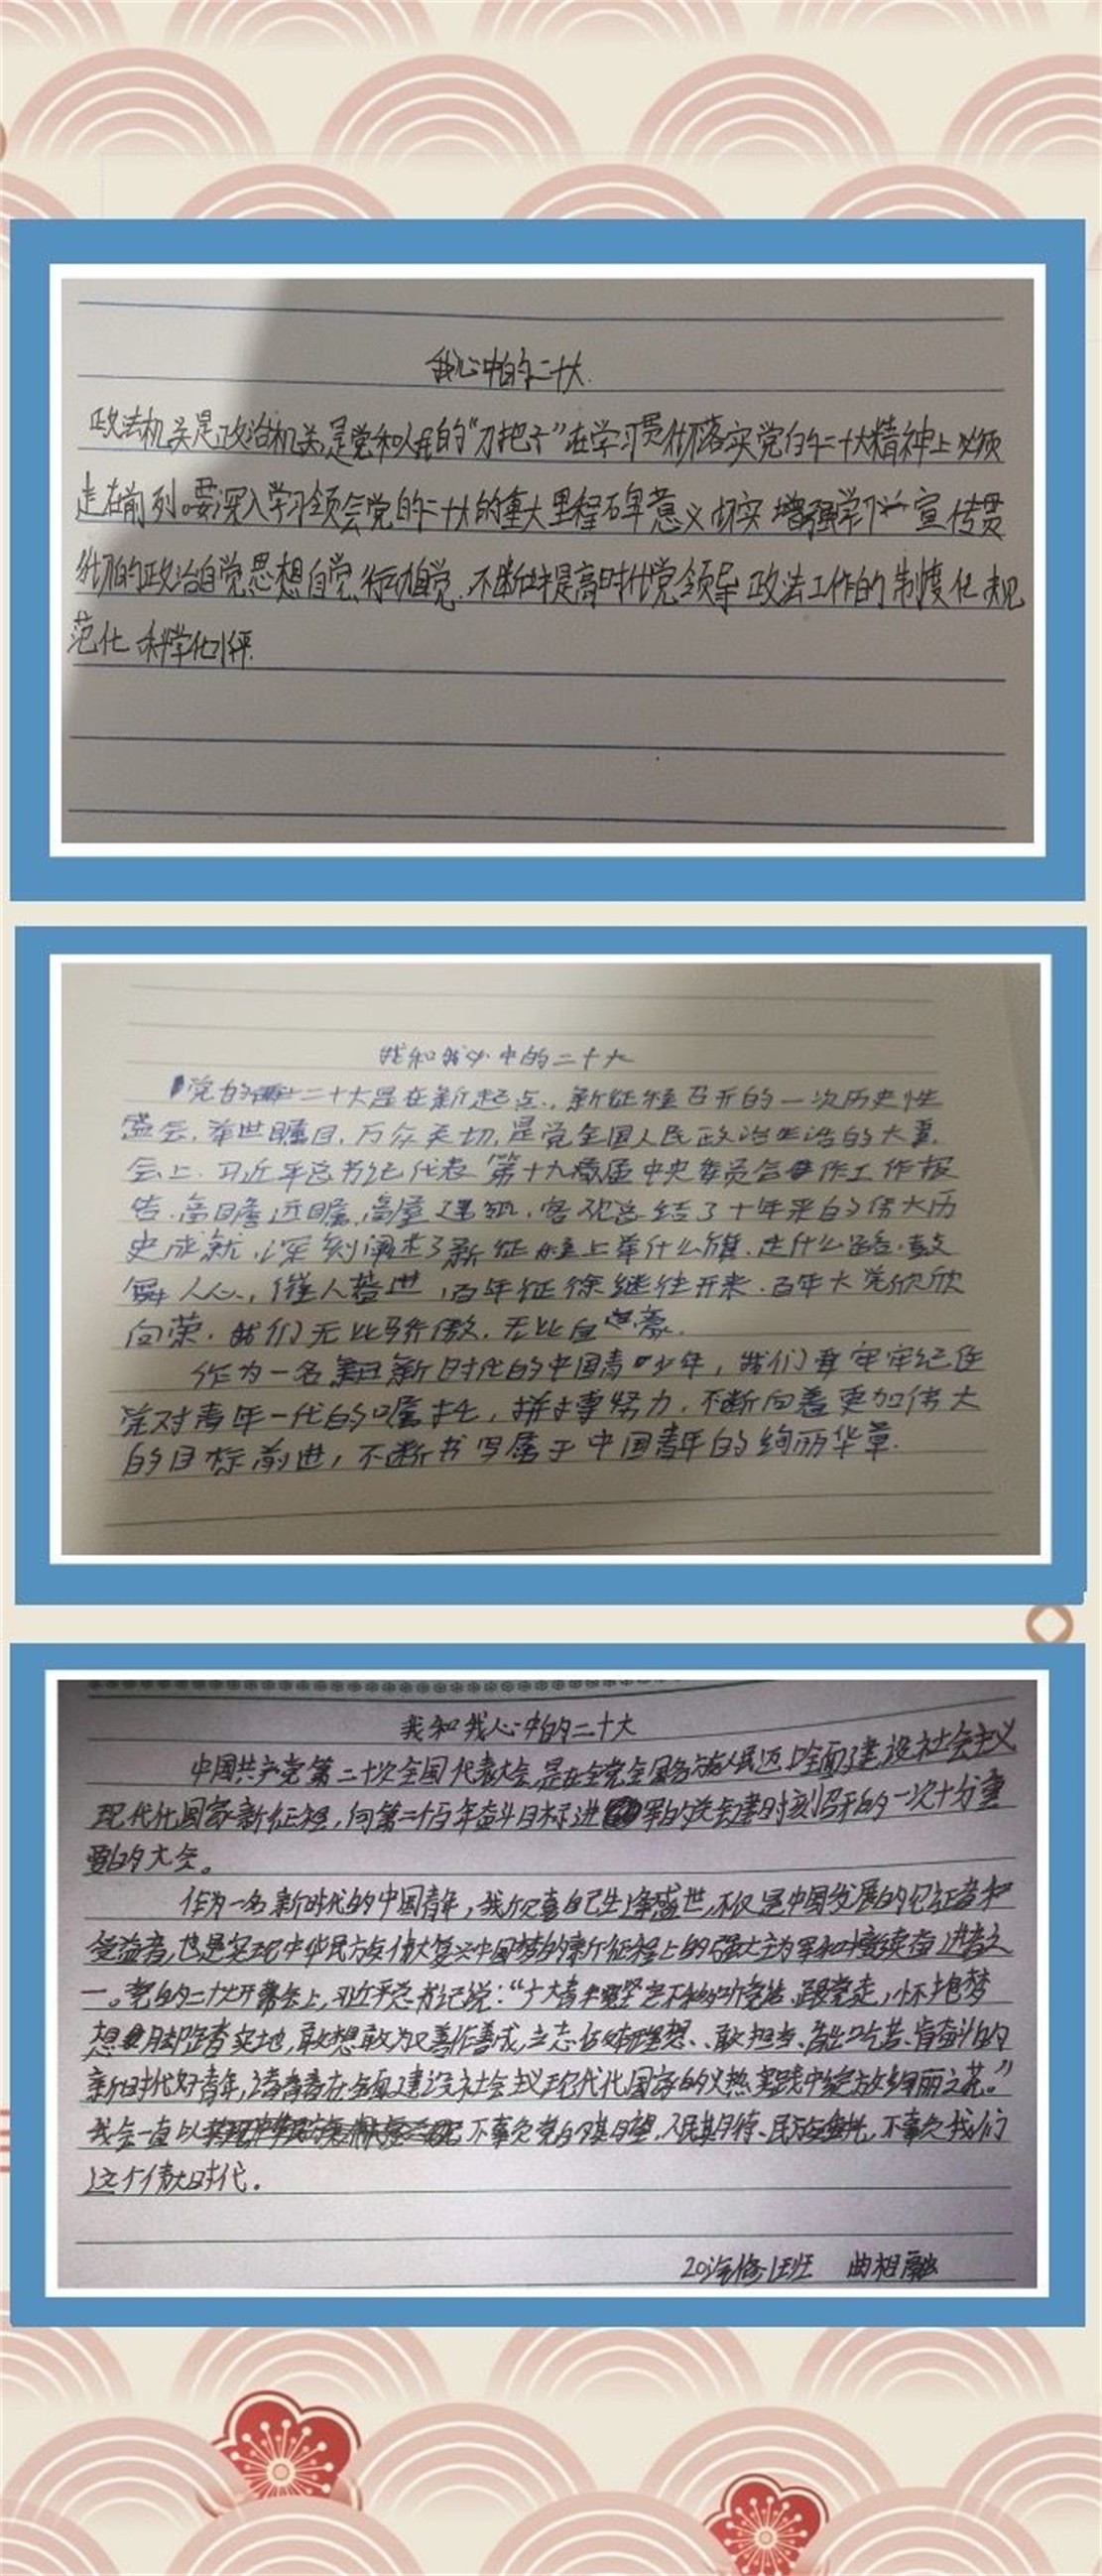 我心中的二十大
政法机关是政治机关,是党和人民的“刀把子”在学习贯彻落实党的二十大精神上必须
走在前列。要深入学习领会党的二十大的重大里程碑意义切实增强学习 宣传贯
彻的政治自觉思想自觉、行动自觉.不断提高时代党领导政法工作的制度化规
范化 科学化水平.
我和我心中的二十大
党的二十大是在新起点,新征程召开的一次历史性
盛会,举世瞩目,万众关切,是党全国人民政治生活的大事,
会上,习近平总书记代表第十九届中央委员会作工作报
告,高瞻远瞩,高屋建瓴,客观总结了十年来的伟大历
史成就,深刻阐述了新征程上举什么旗,走什么路,鼓
舞人心,催人奋进,百年征徐继往开来,百年大党欣欣
向荣,我们无比骄傲,无比自豪.
作为一名新时代的中国青少年,我们要牢牢纪住
党对青年一代的嘱托,拼搏努力,不断向着更加伟大
的目标前进,不断书写属于中国青年的绚丽华章.
我和我心中的二十大
中国共产党第二十次全国代表大会,是在全党全国各族人民迈上全面建设社会主义
现代化国家新征程,向第二个百年奋斗目标进军的关键时刻召开的一次十分重
要的大会。
作为一名新时代的中国青年,我欣喜自己生逢盛世,不仅是中国发展的见证者和
受益者,也是实现中华民族伟大复兴中国梦的新征程上的强大主力军和接续奋进者之
一。党的二十大开幕会上,习近平总书记说:“广大青年要坚定不移听党话、跟党走,怀抱梦
想又脚踏实地,敢想敢为又善作善成,立志做有理想、敢担当、能吃苦、肯奋斗的
新时代好青年,让青春在全面建设社会主义现代化国家的火热实践中绽放绚丽之花。”
我会一直以 不辜负党的期望、人民期待、民族重托,不辜负我们
这个伟大时代。
20汽修1班 曲相融